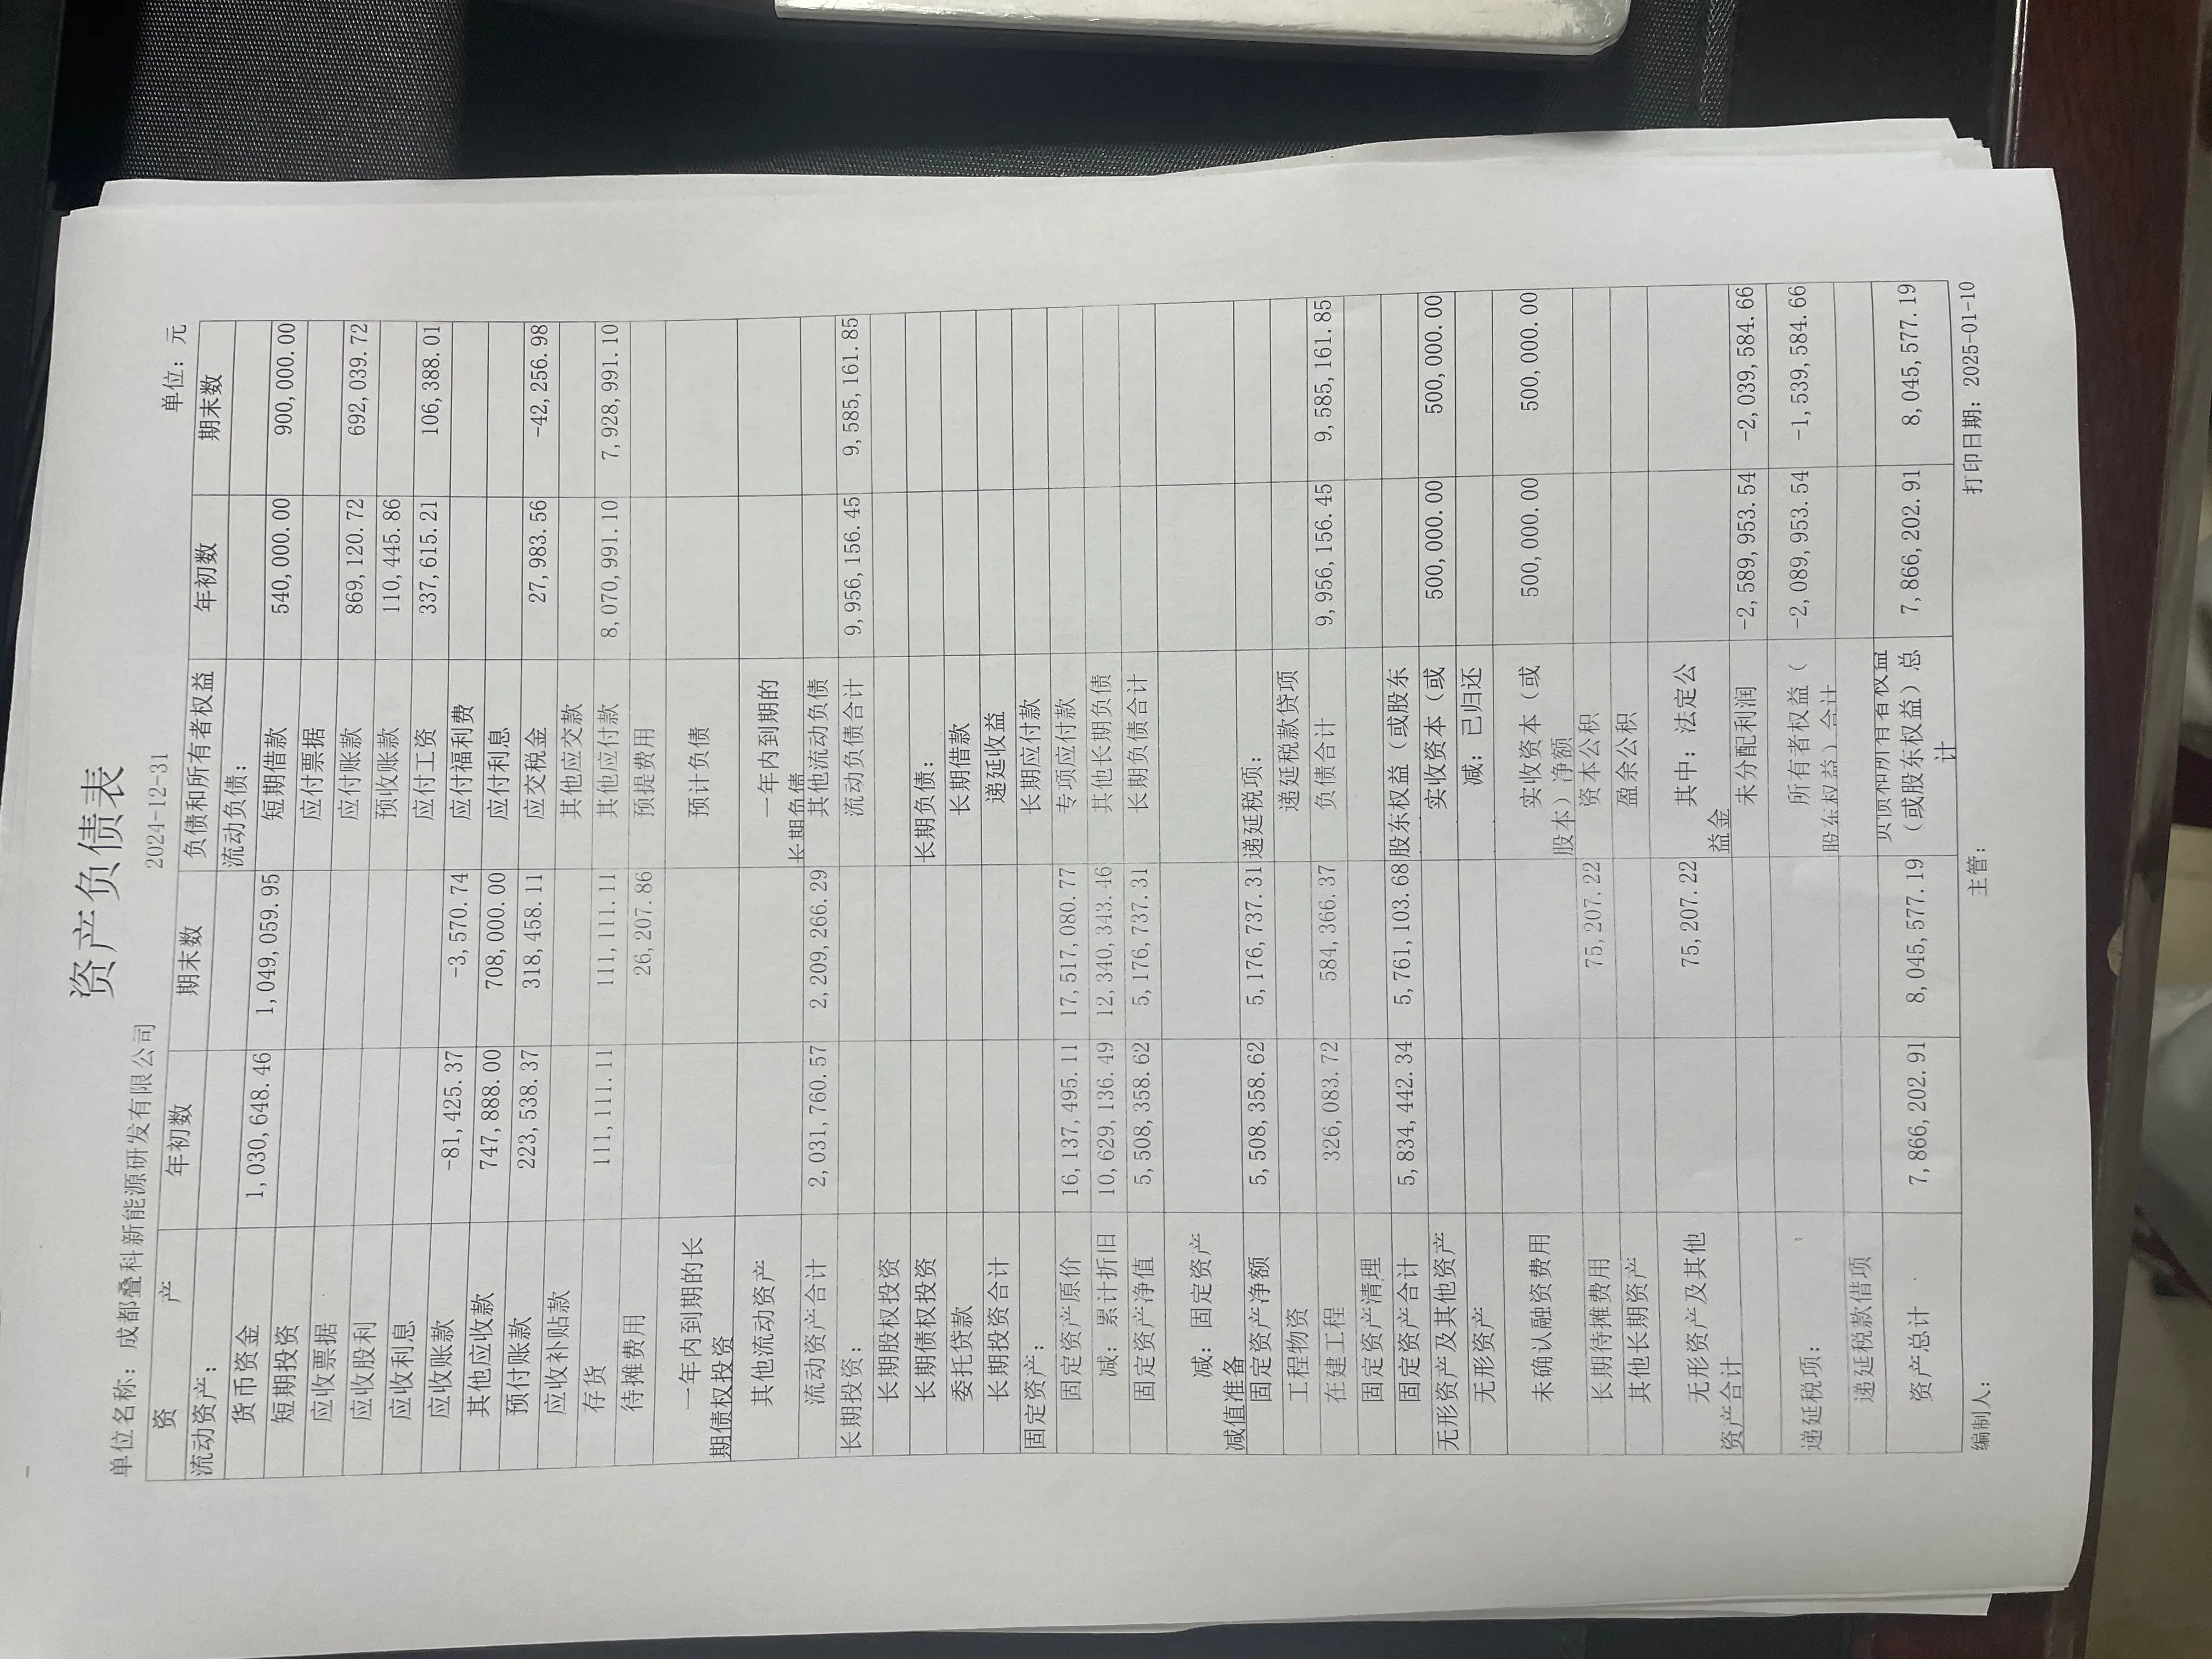 资产负债表
单位名称：成都叠科新能源研发有限公司 2024-12-31 单位：元
资 产 年初数 期末数 负债和所有者权益 年初数 期末数
流动资产： 流动负债：
货币资金 1,030,648.46 1,049,059.95 短期借款 540,000.00 900,000.00
短期投资 应付票据
应收票据 应付账款 869,120.72 692,039.72
应收股利 预收账款 110,445.86
应收利息 应付工资 337,615.21 106,388.01
应收账款 -81,425.37 -3,570.74 应付福利费
其他应收款 747,888.00 708,000.00 应付利息
预付账款 223,538.37 318,458.11 应交税金 27,983.56 -42,256.98
应收补贴款 其他应交款
存货 111,111.11 111,111.11 其他应付款 8,070,991.10 7,928,991.10
待摊费用 26,207.86 预提费用
一年内到期的长期债权投资 预计负债
其他流动资产 一年内到期的长期负债
流动资产合计 2,031,760.57 2,209,266.29 其他流动负债
长期投资： 流动负债合计 9,956,156.45 9,585,161.85
长期股权投资
长期债权投资 长期负债：
委托贷款 长期借款
长期投资合计 递延收益
固定资产： 长期应付款
固定资产原价 16,137,495.11 17,517,080.77 专项应付款
减：累计折旧 10,629,136.49 12,340,343.46 其他长期负债
固定资产净值 5,508,358.62 5,176,737.31 长期负债合计
减：固定资产减值准备
固定资产净额 5,508,358.62 5,176,737.31 递延税项：
工程物资 递延税款贷项
在建工程 326,083.72 584,366.37 负债合计 9,956,156.45 9,585,161.85
固定资产清理
固定资产合计 5,834,442.34 5,761,103.68 股东权益（或股东
无形资产及其他资产 实收资本（或 500,000.00 500,000.00
无形资产 减：已归还
未确认融资费用 实收资本（或股本）净额 500,000.00 500,000.00
长期待摊费用 75,207.22 资本公积
其他长期资产 盈余公积
无形资产及其他资产合计 75,207.22 其中：法定公益金
未分配利润 -2,589,953.54 -2,039,584.66
递延税项： 所有者权益（股东权益）合计 -2,089,953.54 -1,539,584.66
递延税款借项
资产总计 7,866,202.91 8,045,577.19 负债和所有者权益（或股东权益）总计 7,866,202.91 8,045,577.19
编制人： 主管： 打印日期：2025-01-10